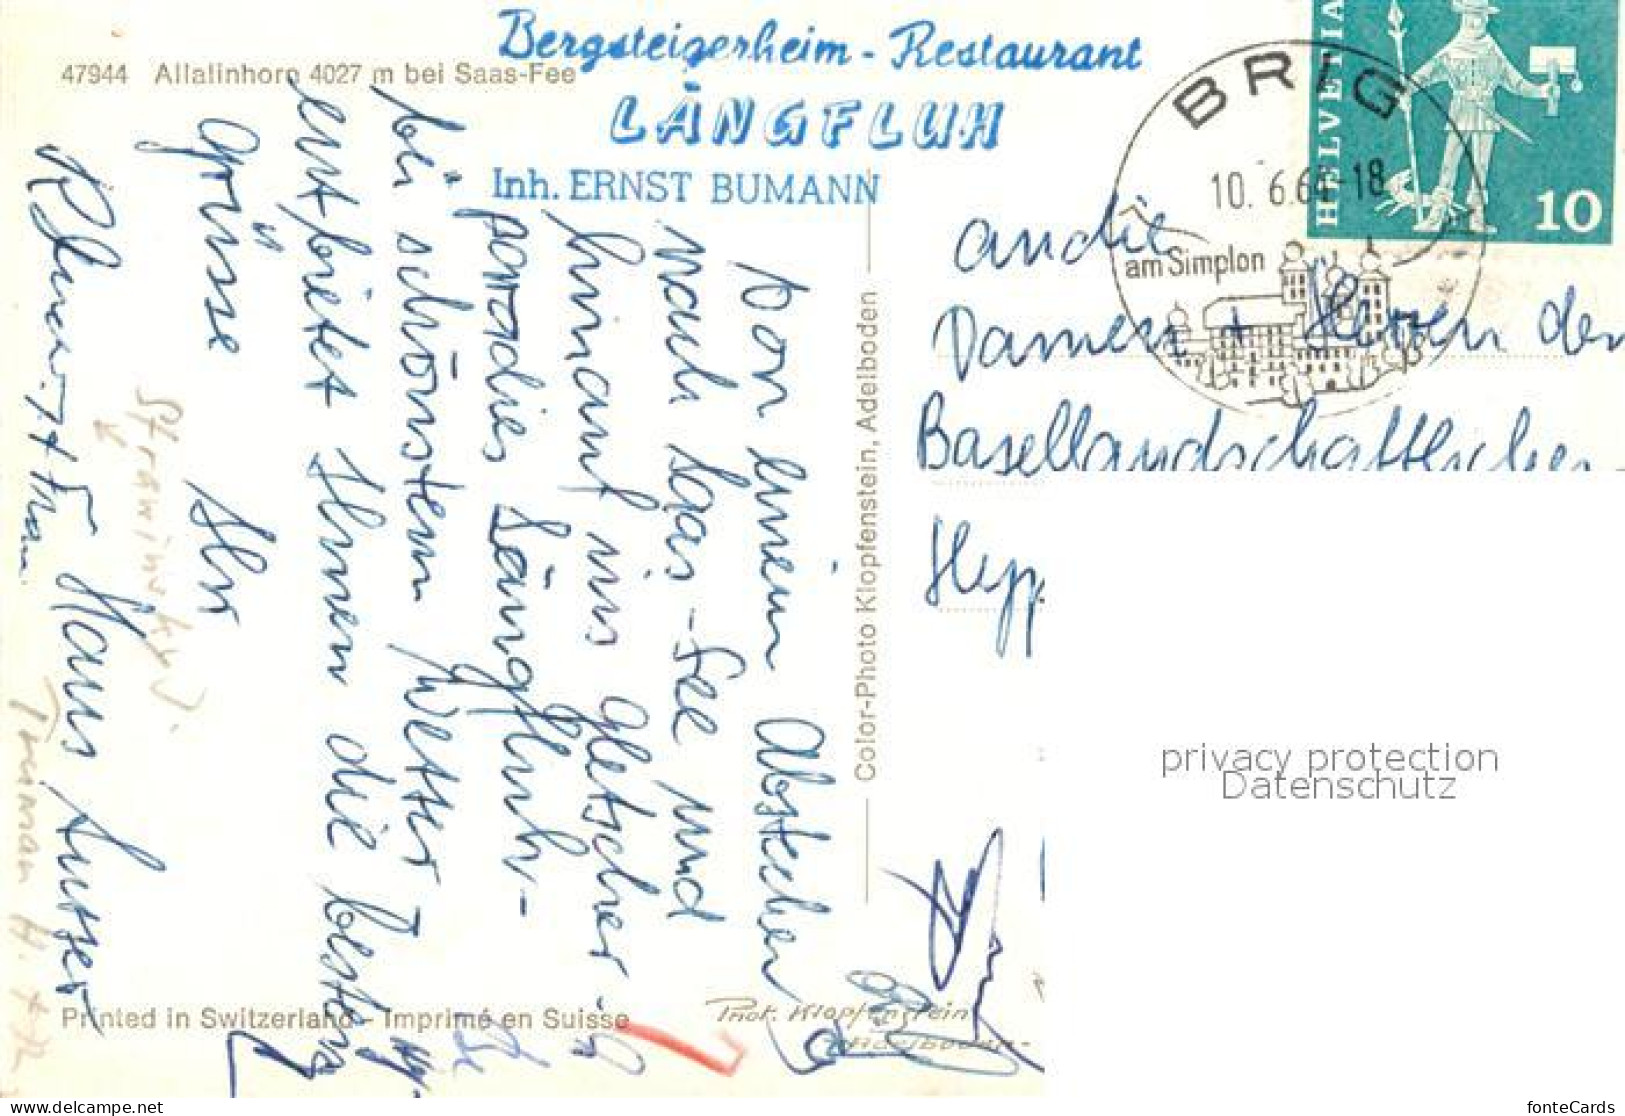 47944 Allalinhorn 4027 m bei Saas-Fee
Bergsteigerheim - Restaurant
LÄNGFLUH
Inh. ERNST BUMANN
Von einem Abstecher
nach Saas-Fee und
hinauf ins Gletscher-
paradies Längfluh-
bei schönstem Wetter
entbietet Ihnen die besten
Grüsse Ihr
Hans Sutter
Strawinsky
Truman H.
Color-Photo Klopfenstein, Adelboden
Printed in Switzerland - Imprimé en Suisse
Phot. Klopfenstein
Adelboden-
BRIG
10. 6.64-18
am Simplon
HELVETIA
10
an die
Damen + Herren der
Basellandschaftlichen
privacy protection
Datenschutz
www.ansichtskartenversand.com
fonteCards